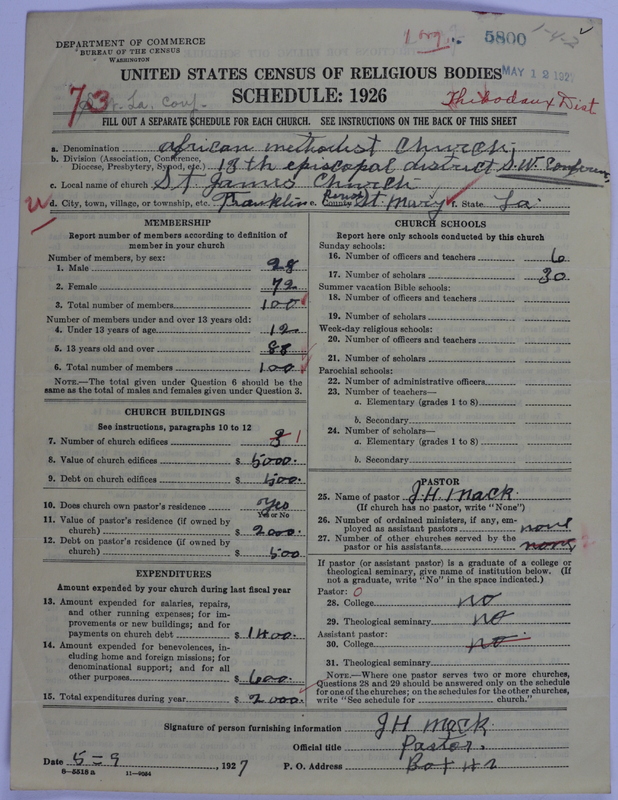 DEPARTMENT OF COMMERCE
BUREAU OF THE CENSUS
WASHINGTON
1 org. 5800
MAY 12 1927
UNITED STATES CENSUS OF RELIGIOUS BODIES
73 La. Conf.
SCHEDULE: 1926
Thibodaux Dist
FILL OUT A SEPARATE SCHEDULE FOR EACH CHURCH. SEE INSTRUCTIONS ON THE BACK OF THIS SHEET
a. Denomination African methodist Church
b. Division (Association, Conference, Diocese, Presbytery, Synod, etc.) 18th episcopal district S.W. Conferen
c. Local name of church St James Church
d. City, town, village, or township, etc. Franklin e. County St. Mary f. State La.
MEMBERSHIP
Report number of members according to definition of
member in your church
Number of members, by sex:
1. Male 28
2. Female 72
3. Total number of members 100
Number of members under and over 13 years old:
4. Under 13 years of age 12
5. 13 years old and over 88
6. Total number of members 100
NOTE.—The total given under Question 6 should be the
same as the total of males and females given under Question 3.
CHURCH BUILDINGS
See instructions, paragraphs 10 to 12
7. Number of church edifices 1
8. Value of church edifices $ 5000.
9. Debt on church edifices $ 500.
10. Does church own pastor's residence yes
Yes or No
11. Value of pastor's residence (if owned by
church) $ 2000.
12. Debt on pastor's residence (if owned by
church) $ 500
EXPENDITURES
Amount expended by your church during last fiscal year
13. Amount expended for salaries, repairs,
and other running expenses; for im-
provements or new buildings; and for
payments on church debt $ 1400.
14. Amount expended for benevolences, in-
cluding home and foreign missions; for
denominational support; and for all
other purposes $ 600.
15. Total expenditures during year $ 2000.
CHURCH SCHOOLS
Report here only schools conducted by this church
Sunday schools:
16. Number of officers and teachers 6
17. Number of scholars 30
Summer vacation Bible schools:
18. Number of officers and teachers
19. Number of scholars
Week-day religious schools:
20. Number of officers and teachers
21. Number of scholars
Parochial schools:
22. Number of administrative officers
23. Number of teachers—
a. Elementary (grades 1 to 8)
b. Secondary
24. Number of scholars—
a. Elementary (grades 1 to 8)
b. Secondary
PASTOR
25. Name of pastor J.H. Mack
(If church has no pastor, write "None")
26. Number of ordained ministers, if any, em-
ployed as assistant pastors none
27. Number of other churches served by the
pastor or his assistants none
If pastor (or assistant pastor) is a graduate of a college or
theological seminary, give name of institution below. (If
not a graduate, write "No" in the space indicated.)
Pastor: 0
28. College no
29. Theological seminary no
Assistant pastor:
30. College no
31. Theological seminary
NOTE.—Where one pastor serves two or more churches,
Questions 28 and 29 should be answered only on the schedule
for one of the churches; on the schedules for the other churches,
write "See schedule for church."
Signature of person furnishing information J H Mack
Official title Pastor.
Date 5=9, 1927 P. O. Address Box 42
8—5518 a 11—9084